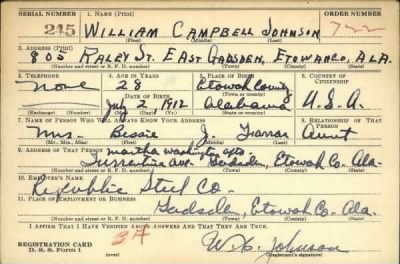 SERIAL NUMBER 1. NAME (Print) ORDER NUMBER
245 WILLIAM CAMPBELL JOHNSON 722
(First) (Middle) (Last)
2. ADDRESS (Print)
805 RALEY ST. EAST GADSDEN, ETOWAH CO, ALA.
(Number and street or R. F. D. number) (Town) (County) (State)
3. TELEPHONE 4. AGE IN YEARS 5. PLACE OF BIRTH 6. COUNTRY OF CITIZENSHIP
None 28 Etowah County
DATE OF BIRTH (Town or county)
July 2, 1912 Alabama U.S.A.
(Exchange) (Number) (Mo.) (Day) (Yr.) (State or country)
7. NAME OF PERSON WHO WILL ALWAYS KNOW YOUR ADDRESS 8. RELATIONSHIP OF THAT PERSON
Mrs. Bessie J. Aunt
(Mr., Mrs., Miss) (First) (Middle) (Last)
9. ADDRESS OF THAT PERSON Martha Washington Apts.
Turrentine Ave. Gadsden, Etowah Co. Ala.
(Number and street or R. F. D. number) (Town) (County) (State)
10. EMPLOYER'S NAME
Republic Steel Co.
11. PLACE OF EMPLOYMENT OR BUSINESS
Gadsden, Etowah Co. Ala.
(Number and street or R. F. D. number) (Town) (County) (State)
I AFFIRM THAT I HAVE VERIFIED ABOVE ANSWERS AND THAT THEY ARE TRUE.
REGISTRATION CARD
D. S. S. Form 1 (over) W. C. Johnson
(Registrant's signature)